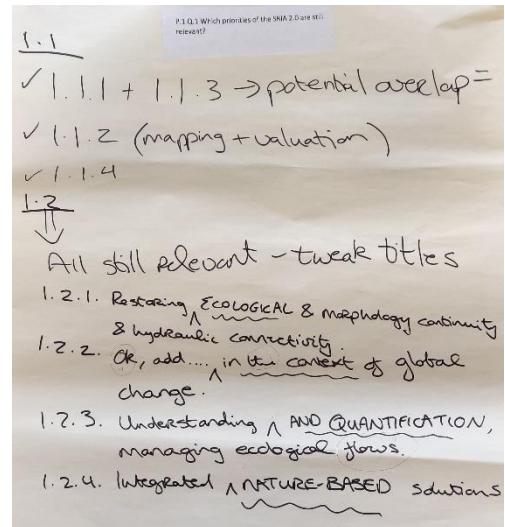 P.1 Q.1 Which priorities of the SRIA 2.0 are still
relevant?
1.1
✓ 1.1.1 + 1.1.3 → potential overlap =
✓ 1.1.2 (mapping + valuation)
✓ 1.1.4
1.2
All still relevant - tweak titles
1.2.1. Restoring ^ ECOLOGICAL & morphology continuity
& hydraulic connectivity.
1.2.2. Ok, add.... ^ in the context of global
change.
1.2.3. Understanding ^ AND QUANTIFICATION,
managing ecological flows.
1.2.4. Integrated ^ NATURE-BASED solutions